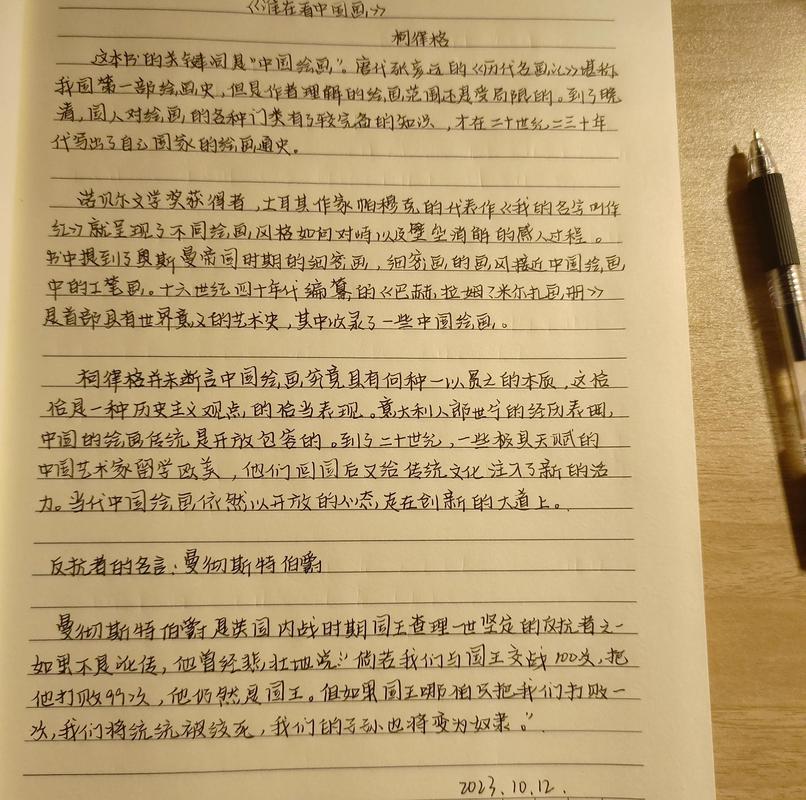 《谁在看中国画》
柯律格
这本书的关键词是“中国绘画”。唐代张彦远的《历代名画记》堪称
我国第一部绘画史，但是作者理解的绘画范围还是受局限的。到了晚
清，国人对绘画的各种门类有了较完备的知识，才在二十世纪二三十年
代写出了自己国家的绘画通史。
诺贝尔文学奖获得者，土耳其作家帕穆克的代表作《我的名字叫
红》就呈现了不同绘画风格如何对峙以及壁垒消解的感人过程。
书中提到了奥斯曼帝国时期的细密画，细密画的画风接近中国绘画
中的工笔画。十六世纪四十年代编纂的《巴赫拉姆·米尔扎画册》
是首部具有世界意义的艺术史，其中收录了一些中国绘画。
柯律格并未断言中国绘画究竟具有何种一以贯之的本质，这恰
恰是一种历史主义观点的恰当表现。意大利人郎世宁的经历表明，
中国的绘画传统是开放包容的。到了二十世纪，一些极具天赋的
中国艺术家留学欧美，他们回国后又给传统文化注入了新的活
力。当代中国绘画依然以开放的心态，走在创新的大道上。
反抗者的名言：曼彻斯特伯爵
曼彻斯特伯爵是英国内战时期国王查理一世坚定的反抗者之一
如果不是讹传，他曾经悲壮地说：“倘若我们与国王交战100次，把
他打败99次，他仍然是国王。但如果国王哪怕只把我们打败一
次，我们将统统被绞死，我们的子孙也将变为奴隶。”
2023.10.12.